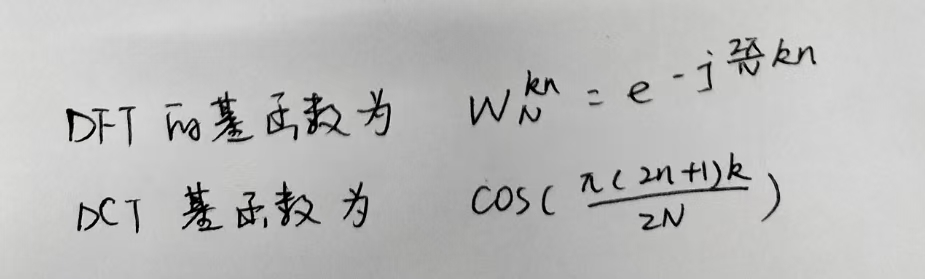 DFT 的基函数为 W_N^{kn} = e^{-j\frac{2π}{N}kn}
DCT 基函数为 cos(\frac{π(2n+1)k}{2N})